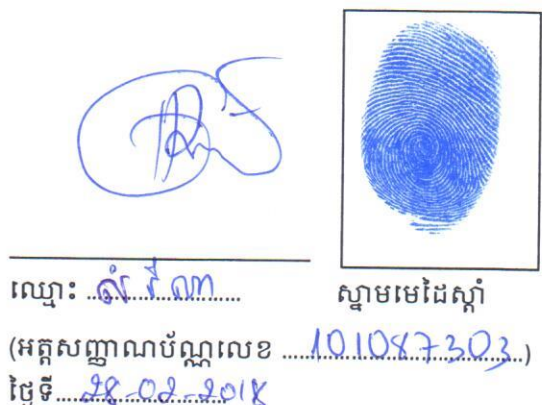 ឈ្មោះ លំ រីណា
ស្នាមមេដៃស្តាំ
(អត្តសញ្ញាណប័ណ្ណលេខ 101087303)
ថ្ងៃទី 28-02-2018